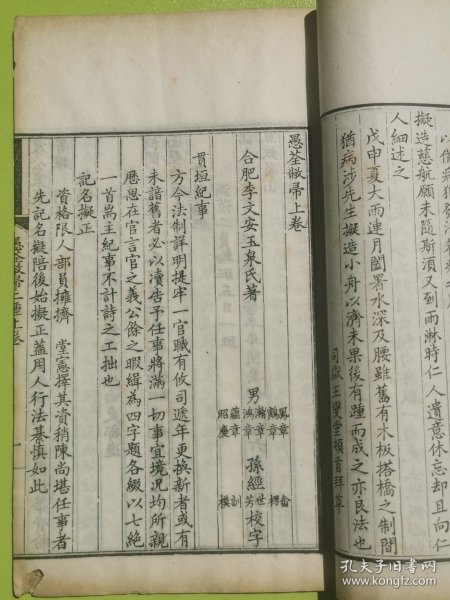 以作病狂發
擬造慈航願未隨斯湏又到雨淋時仁人遺意休忘却且向仁
人細述之
戊申夏大雨連月闔署水深及腰雖舊有木板搭橋之制間
猶病涉先生擬造小舟以濟未果後有踵而成之亦良法也
司獄王燮堂頓首拜草
愚荃敝帚上卷
合肥李文安玉泉氏著
男
瀚章
鴻章
鶴章
蘊章
鳳章
昭慶
孫經
畬
楞
世
芳
訓
橫
校字
貫垣紀事
方今法制詳明提牢一官職有攸司遞年更換新者或有
未諳舊者必以瀆告予任事將滿一切事宜境況均所親
歷思在官言官之義公餘之暇緝為四字題各綴以七絶
一首嵩主紀事不計詩之工拙也
記名擬正
資格限人部員擁擠 堂憲擇其資稍陳尚堪任事者
先記名擬陪後始擬正葢用人行法綦慎如此
愚荃敝帚二種上卷
一
孔夫子旧书网
www.kongfz.com